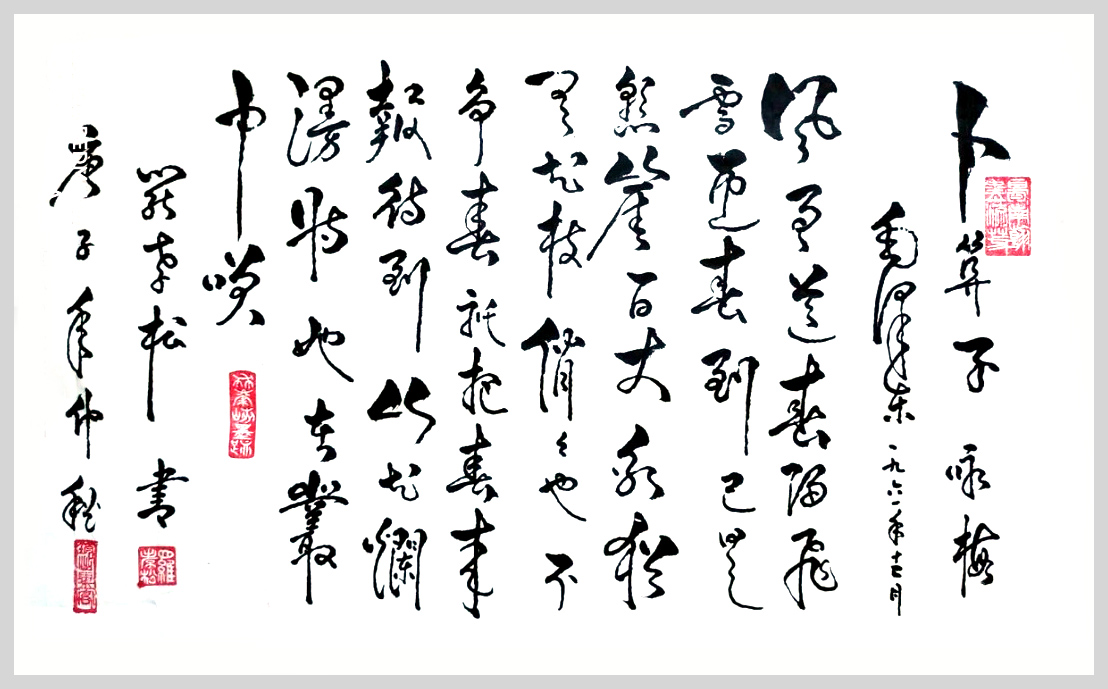 卜算子 咏梅
毛泽东 一九六一年十二月
风雨送春归飞
雪迎春到已是
悬崖百丈冰犹
有花枝俏俏也不
争春祇把春来
报待到山花爛
漫时她在叢
中笑
羅孝松 書
庚子年仲秋
羅孝松